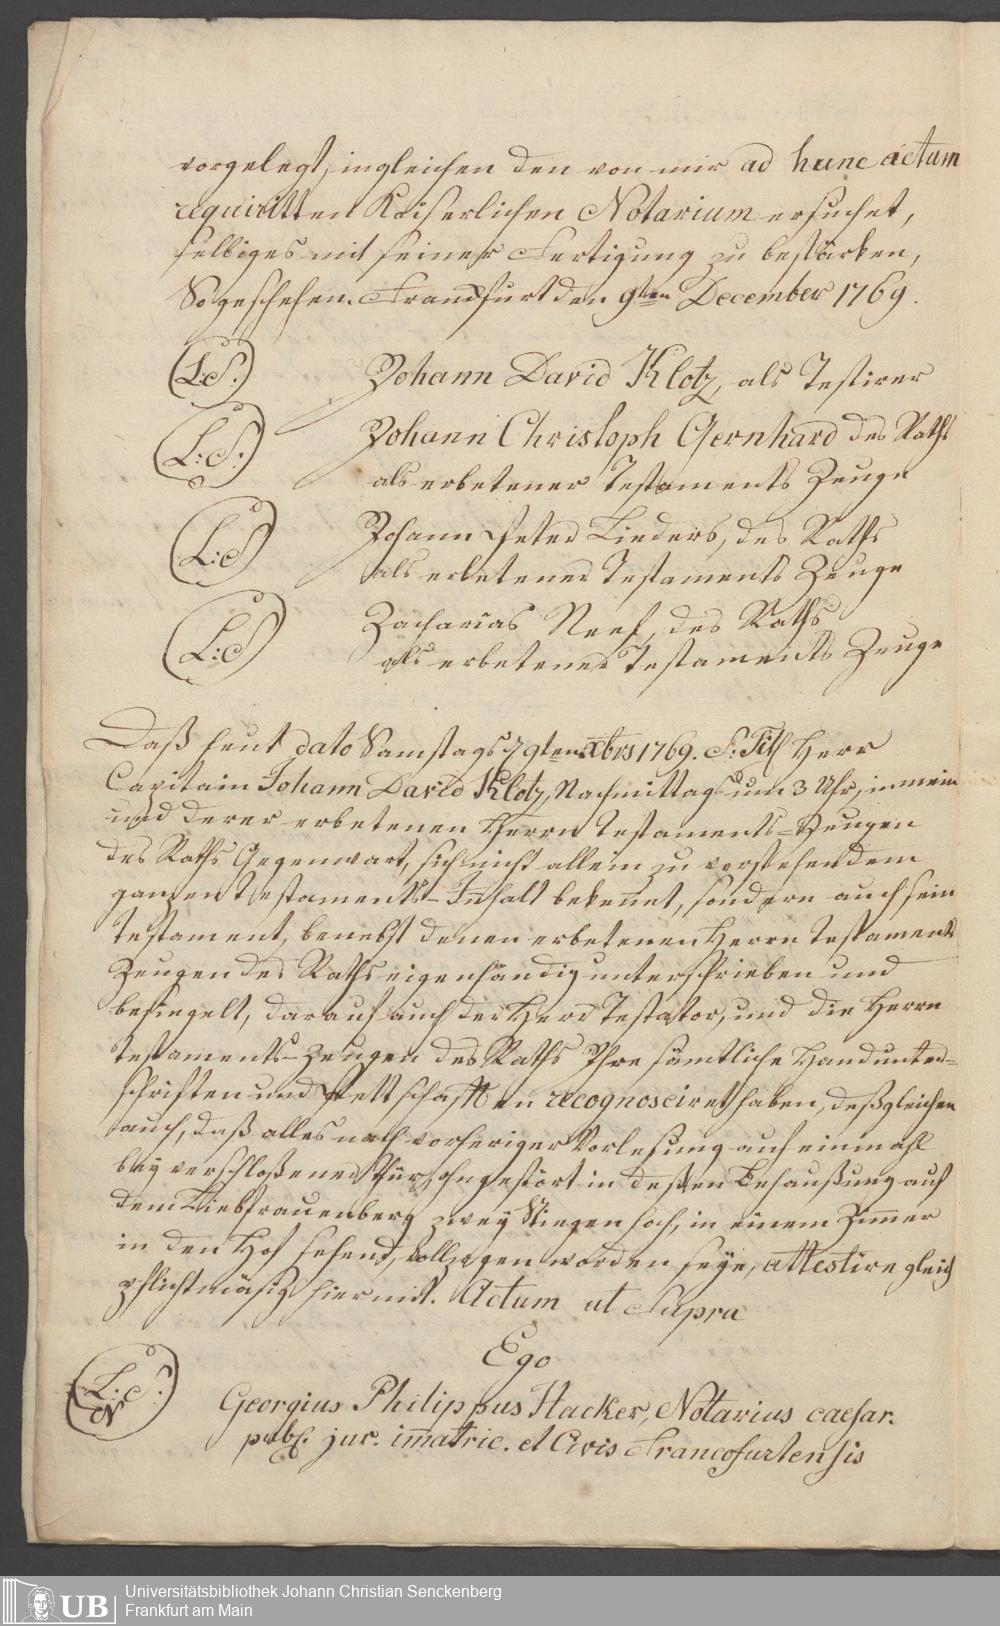 vorgelegt, ingleichen den von mir ad hunc actum
requiritten Kaiserlichen Notarium ersuchet,
selbiges mit seiner Fertigung zu bestärken,
So geschehen. Franckfurt den 9ten December 1769.
(L.S.) Johann David Klotz, als Testirer
(L.S.) Johann Christoph Gernhard des Raths
als erbetener Testaments Zeuge
(L:S) Johann Peter Lieders, des Raths
als erbetener Testaments Zeuge
(L:S) Zacharias Neef, des Raths
als erbetener Testaments Zeuge
Daß heut dato Samstags d 9ten Xbris 1769. S: Titl Herr
Capitain Johann David Klotz, Nachmittags um 3 Uhr, in mein
und derer erbetenen Herrn Testaments-Zeugen
des Raths Gegenwart, sich nicht allein zu vorstehendem
ganzen Testaments-Inhalt bekennet, sondern auch sein
Testament, benebst denen erbetenen Herrn Testaments
Zeugen des Raths eigenhändig unterschrieben und
besiegelt, darauf auch der Herr Testator, und die Herrn
Testaments-Zeugen des Raths Ihre sämtliche Handunter-
schriften und Pettschafften recognosciret haben, deßgleichen
auch, daß alles nach vorheriger Vorlesung auf einmahl
bey verschloßener Thür, ohngestört in deßen Behaußung auf
dem Liebfrauenberg zwey Stiegen hoch, in einem Zimmer
in den Hof sehend, vollzogen worden seye, attestire gleich
pflichtmäsig hiermit. Actum ut Supra
Ego
(L.S.N) Georgius Philippus Hacker, Notarius caesar.
publ. jur. imatric. et Civis Francofurtensis
UB Universitätsbibliothek Johann Christian Senckenberg
Frankfurt am Main